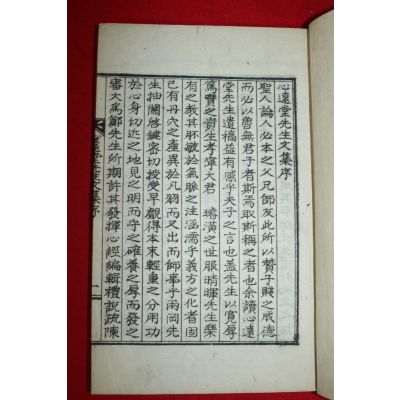 心遠堂先生文集序
聖人論人必本之父兄師友此所以贊子賤之成德
而必以魯無君子者斯焉取斯稱之者也余讀心遠
堂先生遺稿益有感乎夫子之言也盖先生以寬厚
篤實之資生孝寧大君 璿潢之世服晴暉先生樂
有之教其胚毓於氣脈之注涵濡乎義方之化者固
已有丹穴之產異於凡羽而又出而師事乎兩岡先
生抽關啓鍵密切授受早觀得本末輕重之分用功
於心身切近之地見之明而守之確養之厚而發之
審大爲鄭先生所期許其發揮心經編輯禮說疏陳
心遠堂先生文集序
一